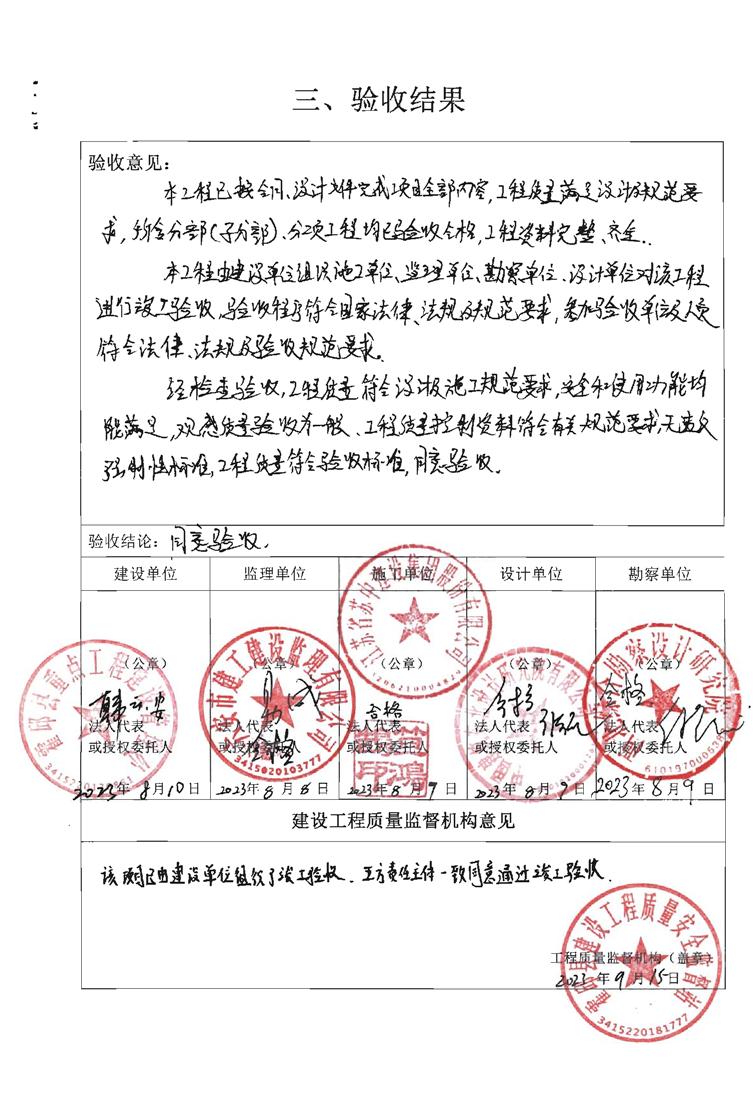 三、验收结果
验收意见：
本工程已按合同、设计文件完成项目全部内容，工程质量满足设计及规范要
求，所含分部(子分部)、分项工程均已验收合格，工程资料完整、齐全.
本工程由建设单位组织施工单位、监理单位、勘察单位、设计单位对该工程
进行竣工验收，验收程序符合国家法律、法规及规范要求，参加验收单位及人员
符合法律、法规及验收规范要求。
经检查验收，工程质量符合设计及施工规范要求，安全和使用功能均
能满足，观感质量验收为一般、工程质量控制资料符合有关规范要求，无违反
强制性标准，工程质量符合验收标准，同意验收。
验收结论：同意验收.
建设单位 监理单位 施工单位 设计单位 勘察单位
江苏省苏中建设集团股份有限公司
（公章） （公章） （公章） （公章） （公章）
霍邱县重点工程建设
市建工建设监理有限公司
勘察设计研究院
合格 合格 合格 合格
法人代表 法人代表 法人代表 法人代表 法人代表
或授权委托人 或授权委托人 或授权委托人 或授权委托人 或授权委托人
3415020103777
2023年8月10日 2023年8月8日 2023年8月9日 2023年8月9日 2023年8月9日
建设工程质量监督机构意见
该项目已由建设单位组织了竣工验收、五方责任主体一致同意通过竣工验收.
霍邱县建设工程质量安全监督站
工程质量监督机构（盖章）
2023年9月15日
3415220181777